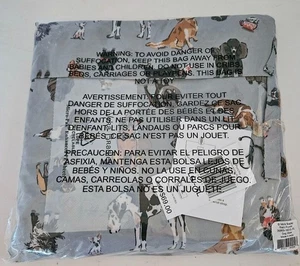 WARNING: TO AVOID DANGER OF
SUFFOCATION, KEEP THIS BAG AWAY FROM
BABIES AND CHILDREN. DO NOT USE IN CRIBS,
BEDS, CARRIAGES OR PLAYPENS. THIS BAG IS
NOT A TOY
AVERTISSEMENT: POUR EVITER TOUT
DANGER DE SUFFOCATION, GARDEZ CE SAC
HORS DE LA PORTÉE DES BÉBÉS ET DES
ENFANTS. NE PAS UTILISER DANS UN LIT
D'ENFANT, LITS, LANDAUS OU PARCS POUR
BÉBÉS. CE SAC N'EST PAS UN JOUET.
PRECAUCION: PARA EVITAR EL PELIGRO DE
ASFIXIA, MANTENGA ESTA BOLSA LEJOS DE
BEBÉS Y NIÑOS. NO LA USE EN CUNAS,
CAMAS, CARREOLAS O CORRALES DE JUEGO.
ESTA BOLSA NO ES UN JUGUETE.
$69.00